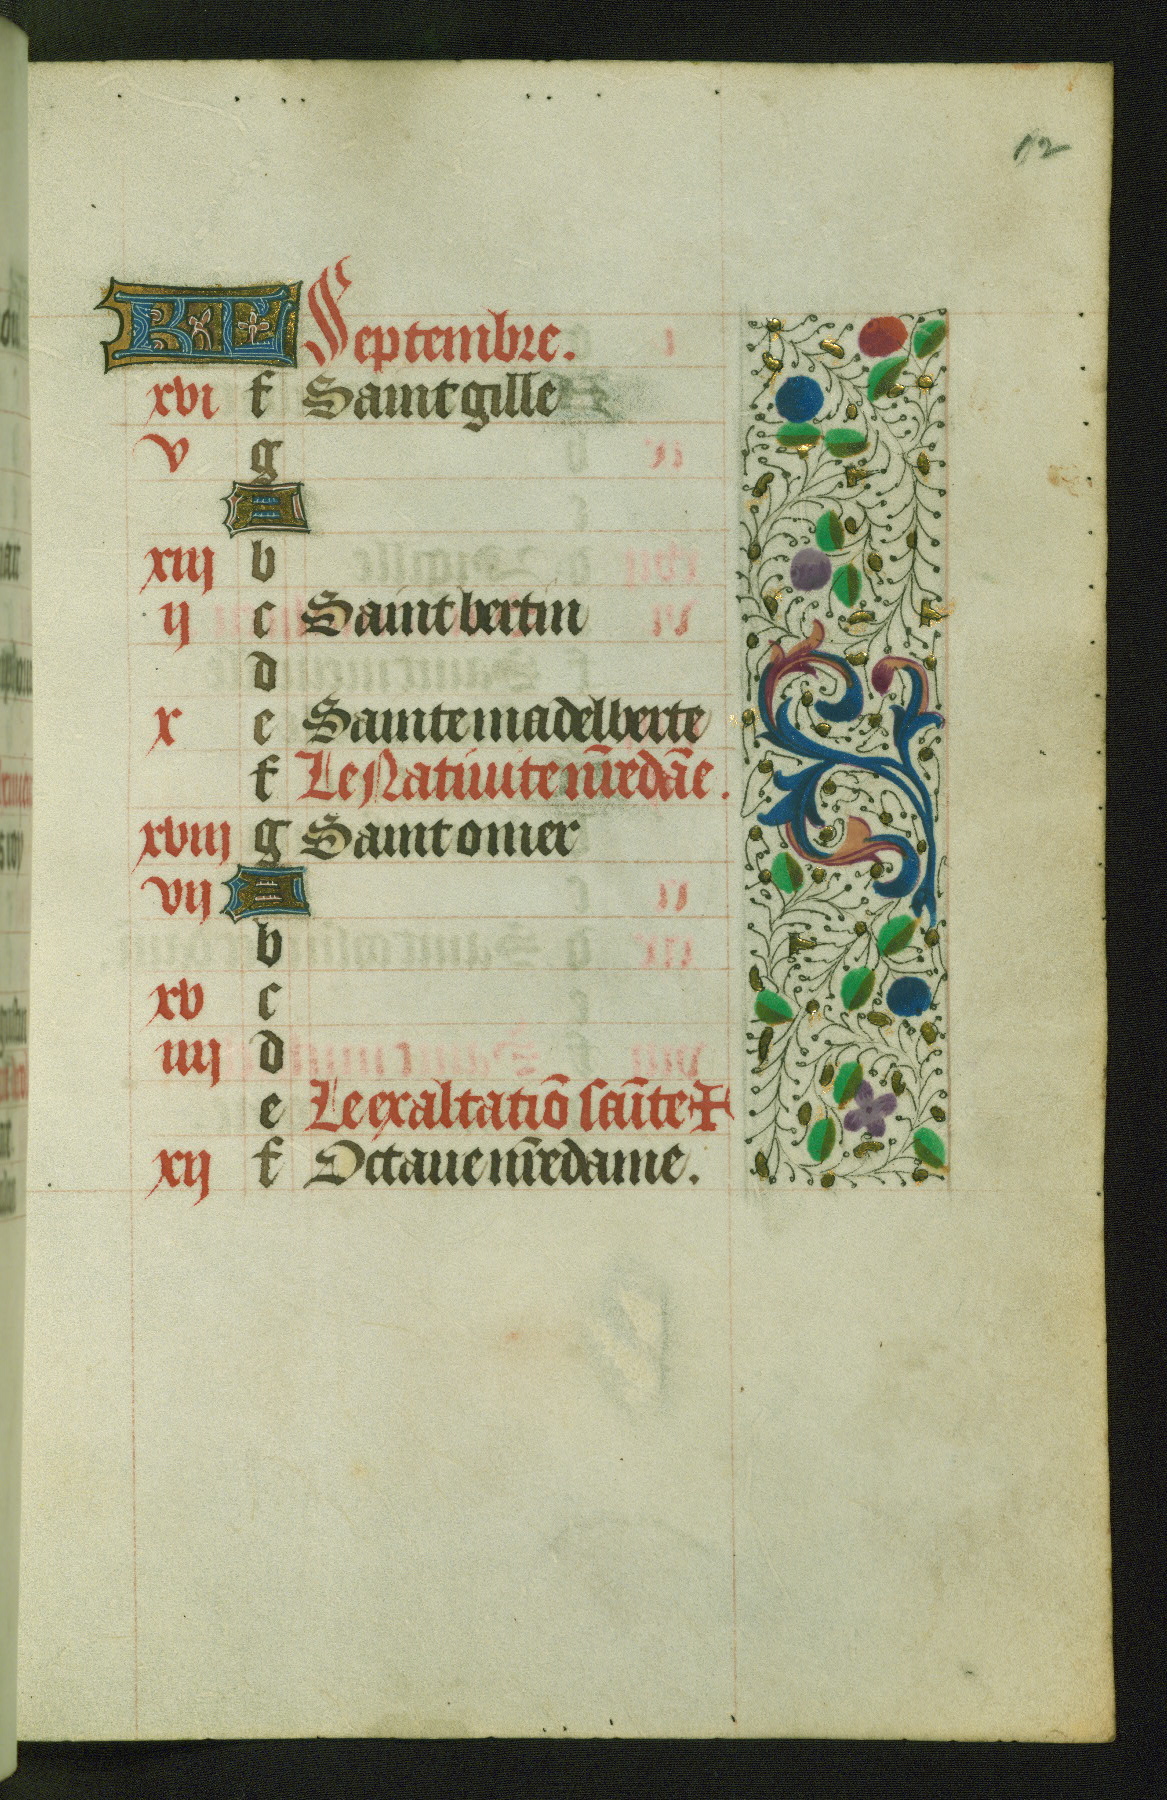 12
KL Septembre.
xvi f Saint gille
v g
A
xiij b
ij c Saint bertin
d
x e Sainte madelberte
f Le Natiuite nr̄e dāe.
xviij g Saint omer
vij A
b
xv c
iiij d
e Le exaltatiō sāīte ✝
xij f Octaue nr̄e dame.